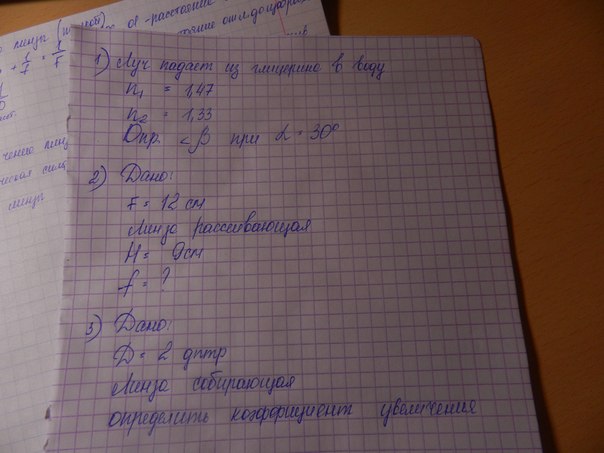 линзы
f F
d - расстояние
1) Луч падает из глицерина в воду
n₁ = 1,47
n₂ = 1,33
Опр. <β при α = 30°
2) Дано:
F = 12 см
Линза рассеивающая
H = 9см
f = ?
3) Дано:
D = 2 дптр
Линза собирающая
определить коэффициент увеличения
линзы